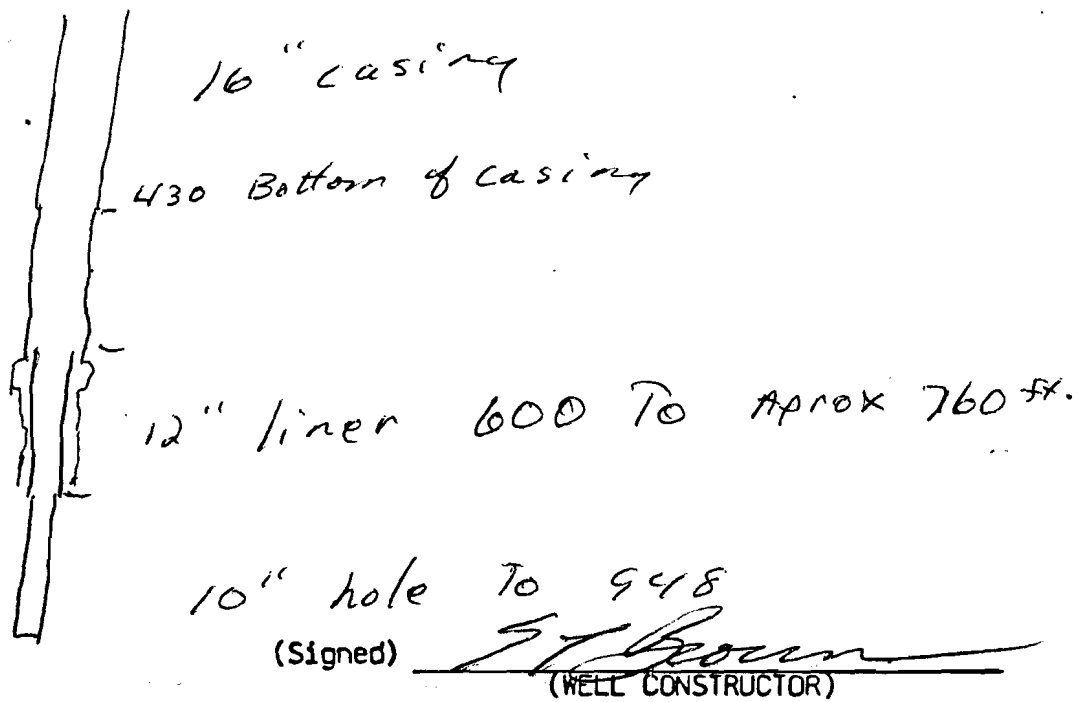 16" casing
430 Bottom of casing
12" liner 600 To Aprox 760 ft.
10" hole To 948
(Signed) Brown
(WELL CONSTRUCTOR)